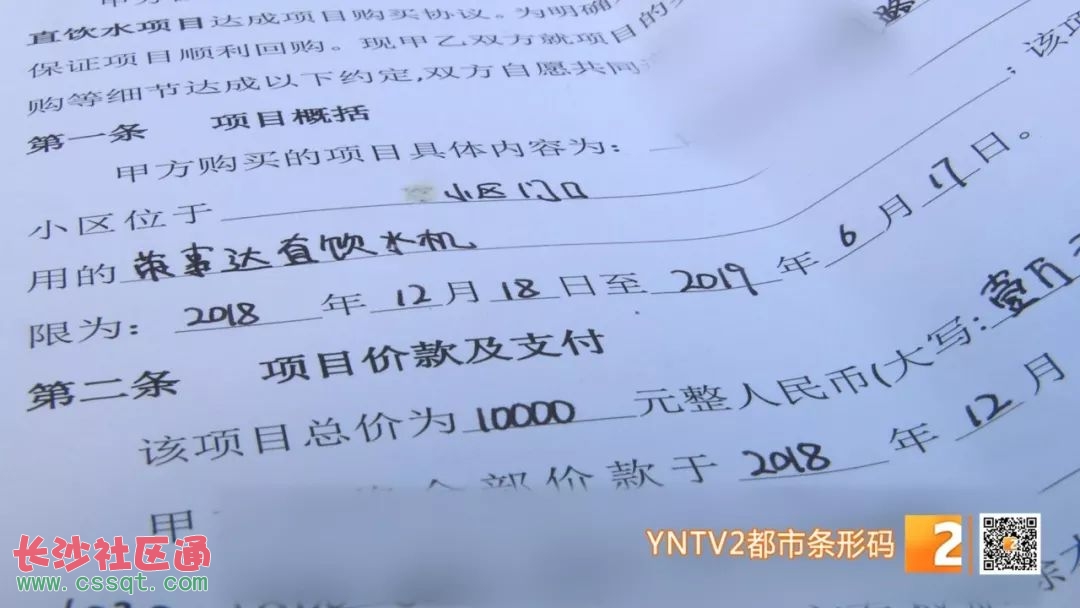 直饮水项目达成项目购买协议。为明确
保证项目顺利回购。现甲乙双方就项目的
购等细节达成以下约定,双方自愿共同
第一条 项目概括
甲方购买的项目具体内容为:
小区位于 小区门口 ；该项
用的 荣事达直饮水机
限为: 2018 年 12 月 18 日至 2019 年 6 月 17 日。
第二条 项目价款及支付
该项目总价为 10000 元整人民币(大写: 壹万
甲 全部价款于 2018 年 12 月
YNTV2都市条形码 2
长沙社区通
www.cssqt.com